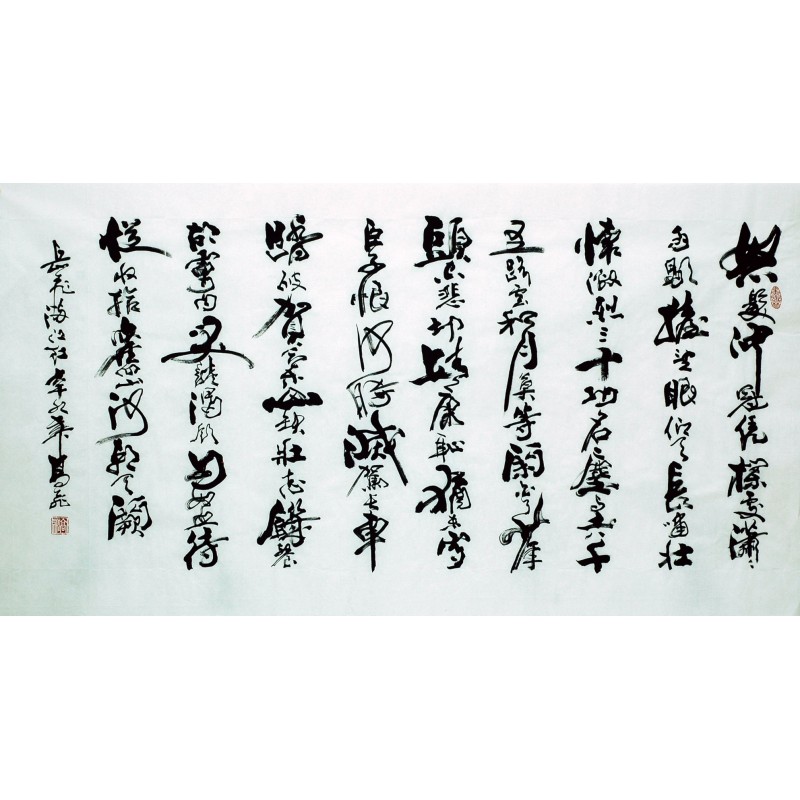 怒髮冲冠凭欄處瀟瀟
雨歇抬望眼仰天長嘯壯
懷激烈三十功名塵与土八千
里路雲和月莫等閑白了少年
頭空悲切靖康恥猶未雪
臣子恨何時滅駕長車
踏破賀蘭山缺壯志饑餐
胡虜肉笑談渴飲匈奴血待
從收拾舊山河朝天闕
岳飛滿江紅辛卯年